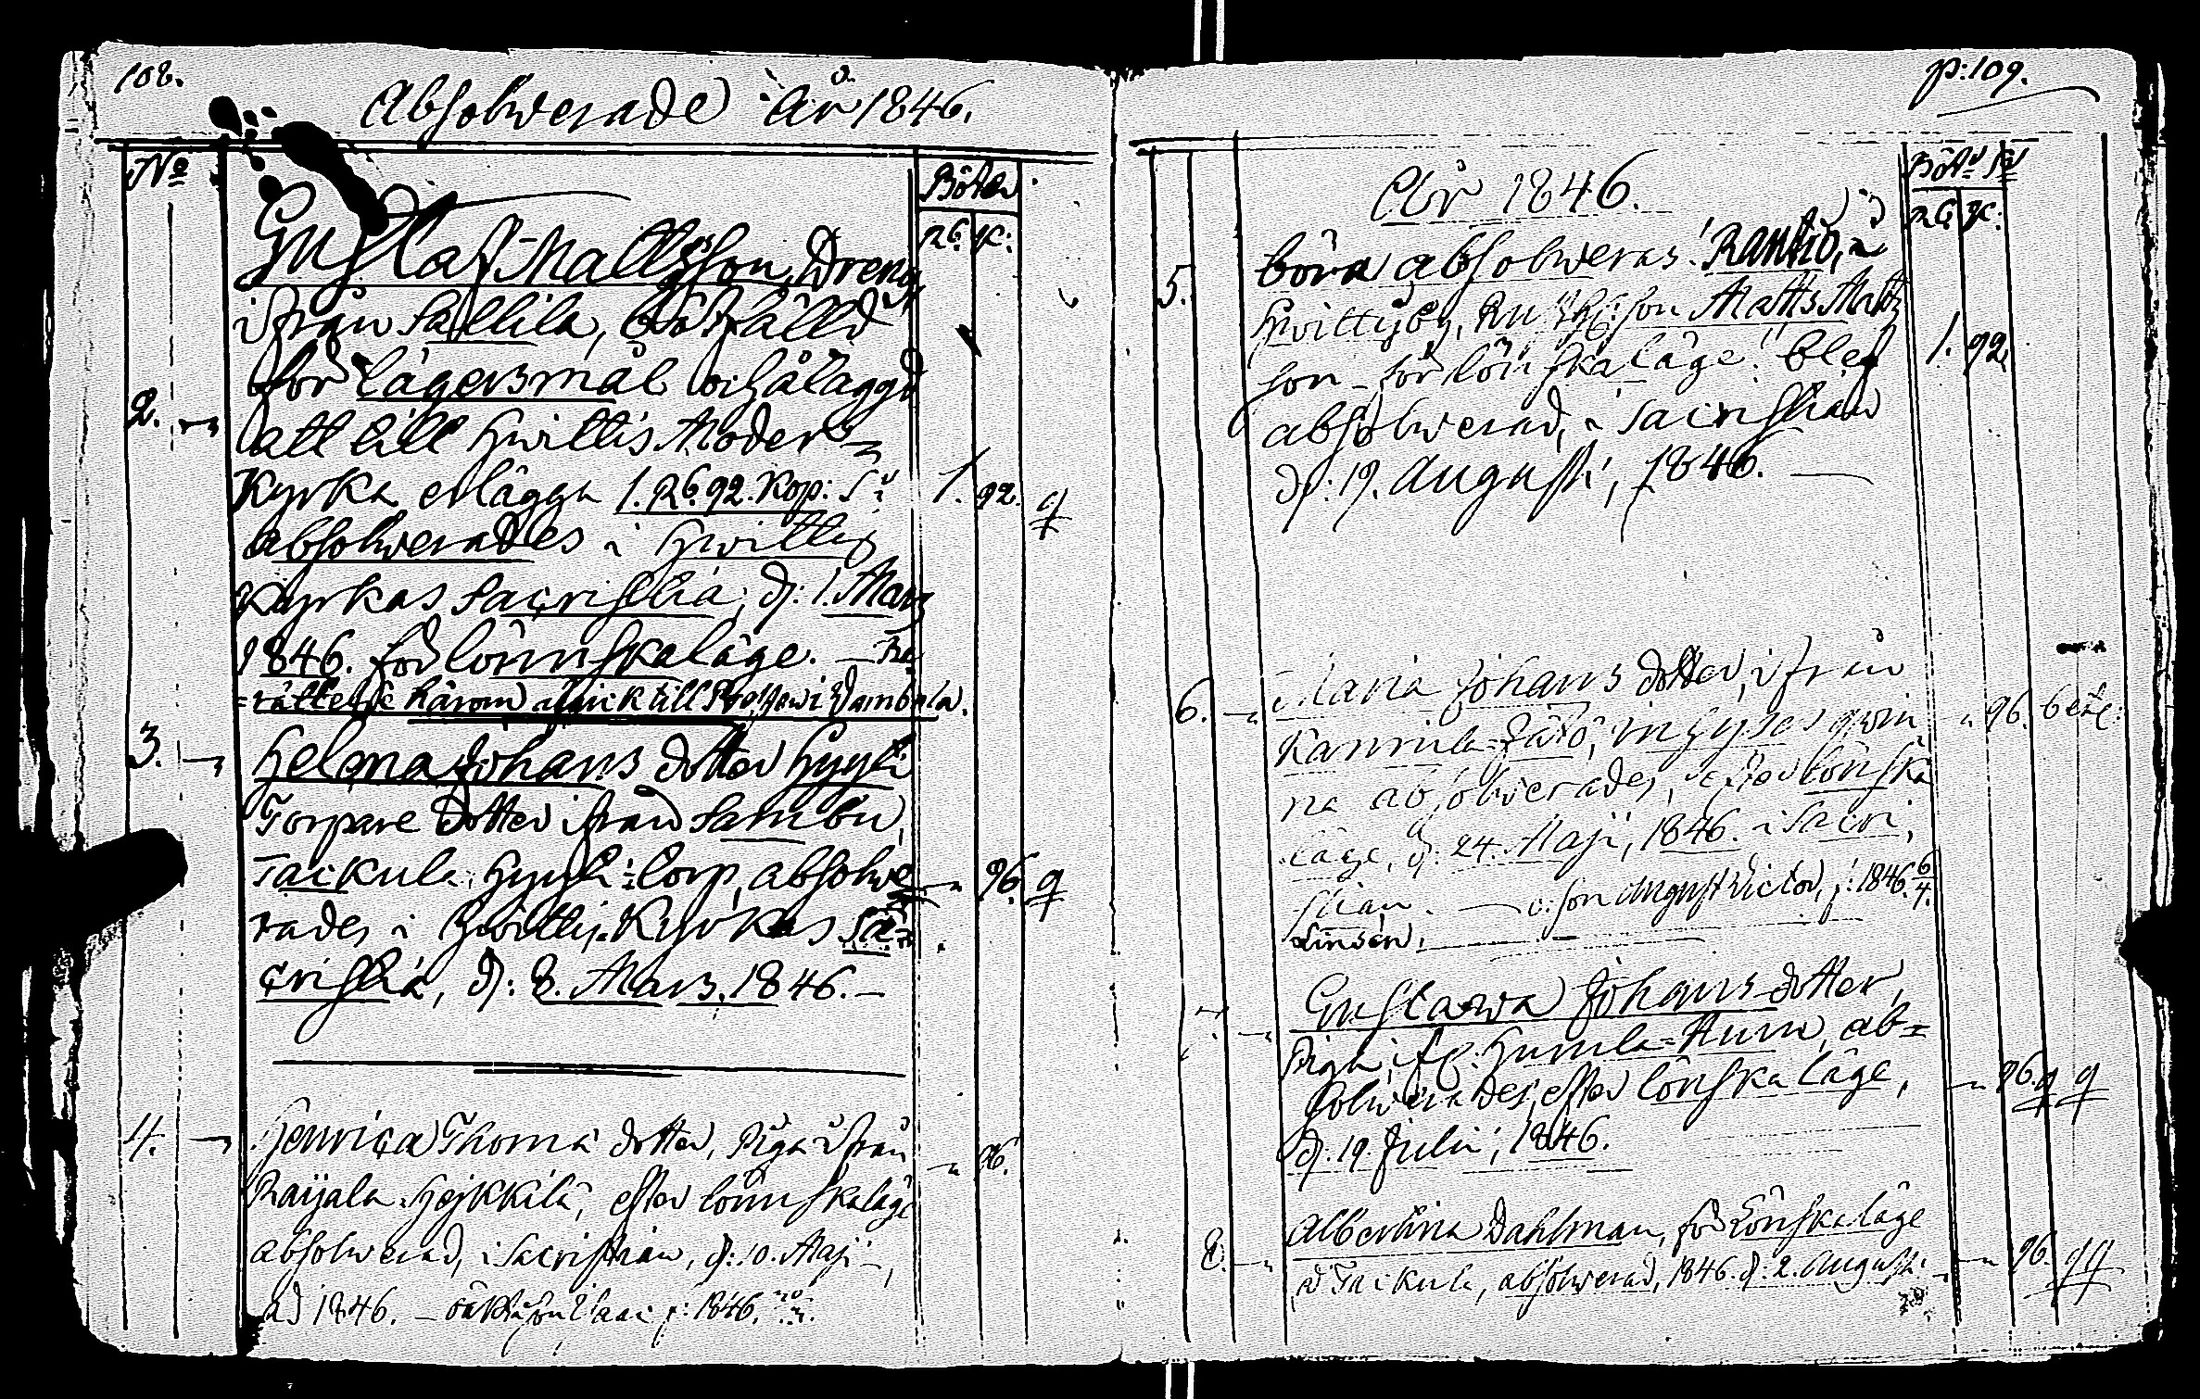 108.
Absolverade År 1846.
No
Böter
R. K:
Gustaf Mattsson, Dreng
ifrån Sallila, bötfälld
för lägersmål och ålaggd
2.
att till Hvittis Moder=
Kyrka erlägga 1. R. 92. Kop: S:r
1. 92.
absolverades i Hvittis
Kyrkas Sacristia, d: 1. Mars
1846. för lönnskaläge. — Un=
=rättelse härom till Wambula.
3.
Helena Johans dotter Hyyli
Torpare dotter ifrån Sambu,
Taikula Hyyli: torp, absolve
" 96.
rades i Hvittis Kyrkas Sa=
cristia, d: 8. Mars, 1846. —
4.
Henrica Thomä dotter, Piga ifrån
" 96.
Raijala Heikkilä, efter lönnskaläge
absolverad, i Sacristian, d: 10. Maji
1846. — 1846.
p: 109.
År 1846.
Böt:r
R. K:
5.
böra absolveras: Rantio, i
Hvittisby, son Matts Matts
son — för lönskaläge: blef
1. 92.
absolverad, i Sacristian
d: 19. Augusti, 1846. —
6.
Maria Johans dotter, ifrån
" 96. bet:
Kannula inhyses qvin
na absolverades, efter lönska
läge, d: 24. Maji, 1846. i Sacri,
stian. — o: son August Victor, f: 1846. 6/4.
Gustava Johans dotter,
Piga, Humula ab=
solverades, efter lönska läge,
" 96.
d: 19. Julii, 1846.
8.
Albertina Dahlman, för Lönskaläge
Taikula, absolverad, 1846. d: 2. Augusti.
" 96.